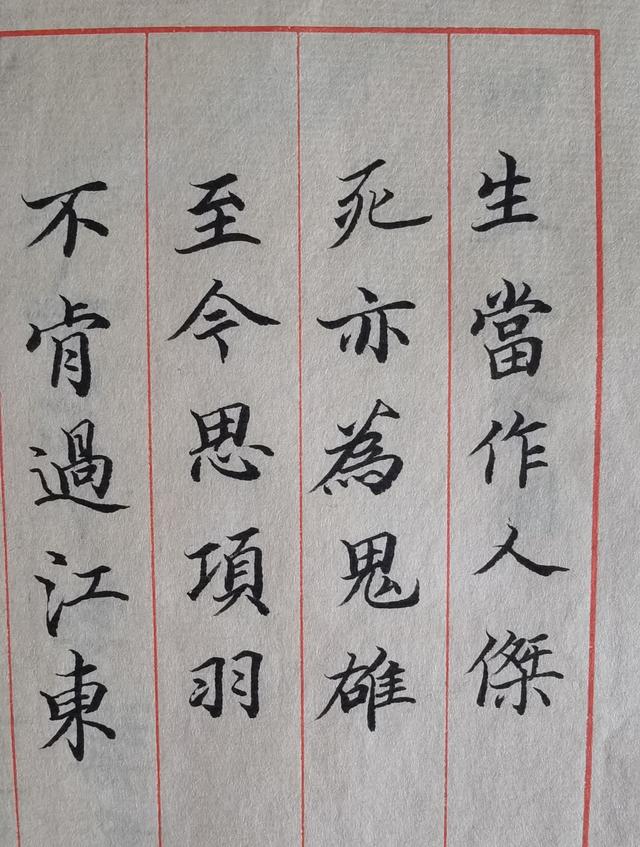 生當作人傑
死亦為鬼雄
至今思項羽
不肯過江東